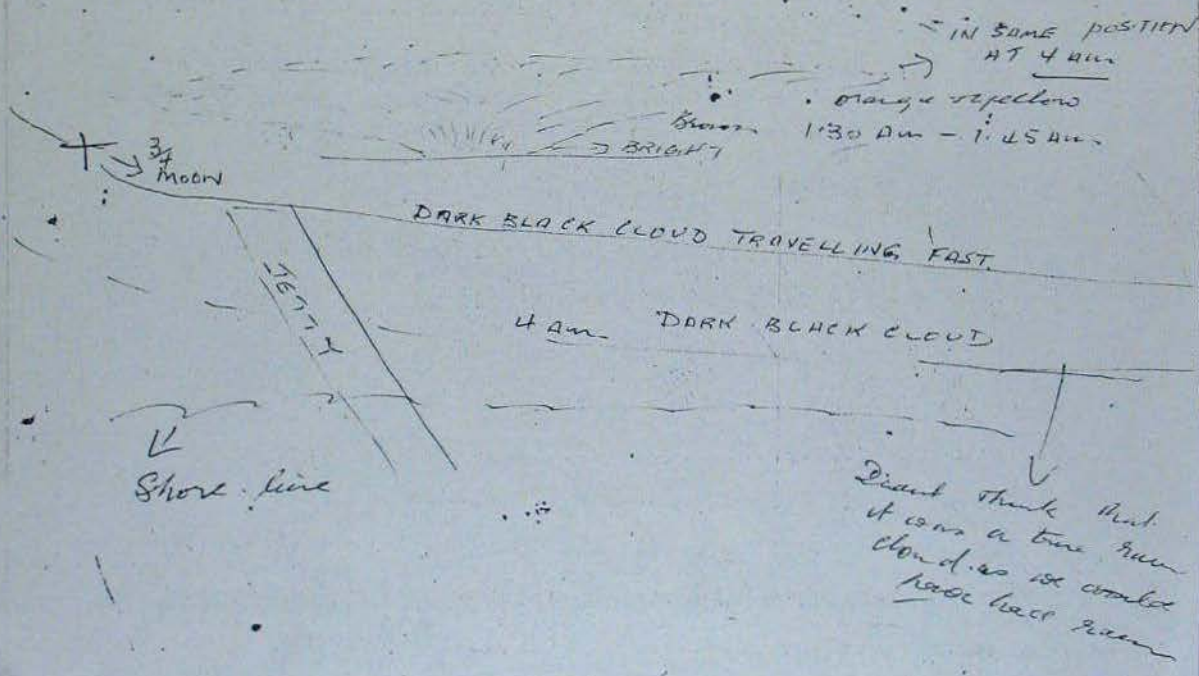 IN SAME POSITION
AT 4 AM
orange
Brown 1.30 AM - 1.45 AM
BRIGHT
3/4
MOON
DARK BLACK CLOUD TRAVELLING FAST.
JETTY
4 am DARK BLACK CLOUD
Shore line
Didnt think that
it was a true rain
cloud as we would
have had rain